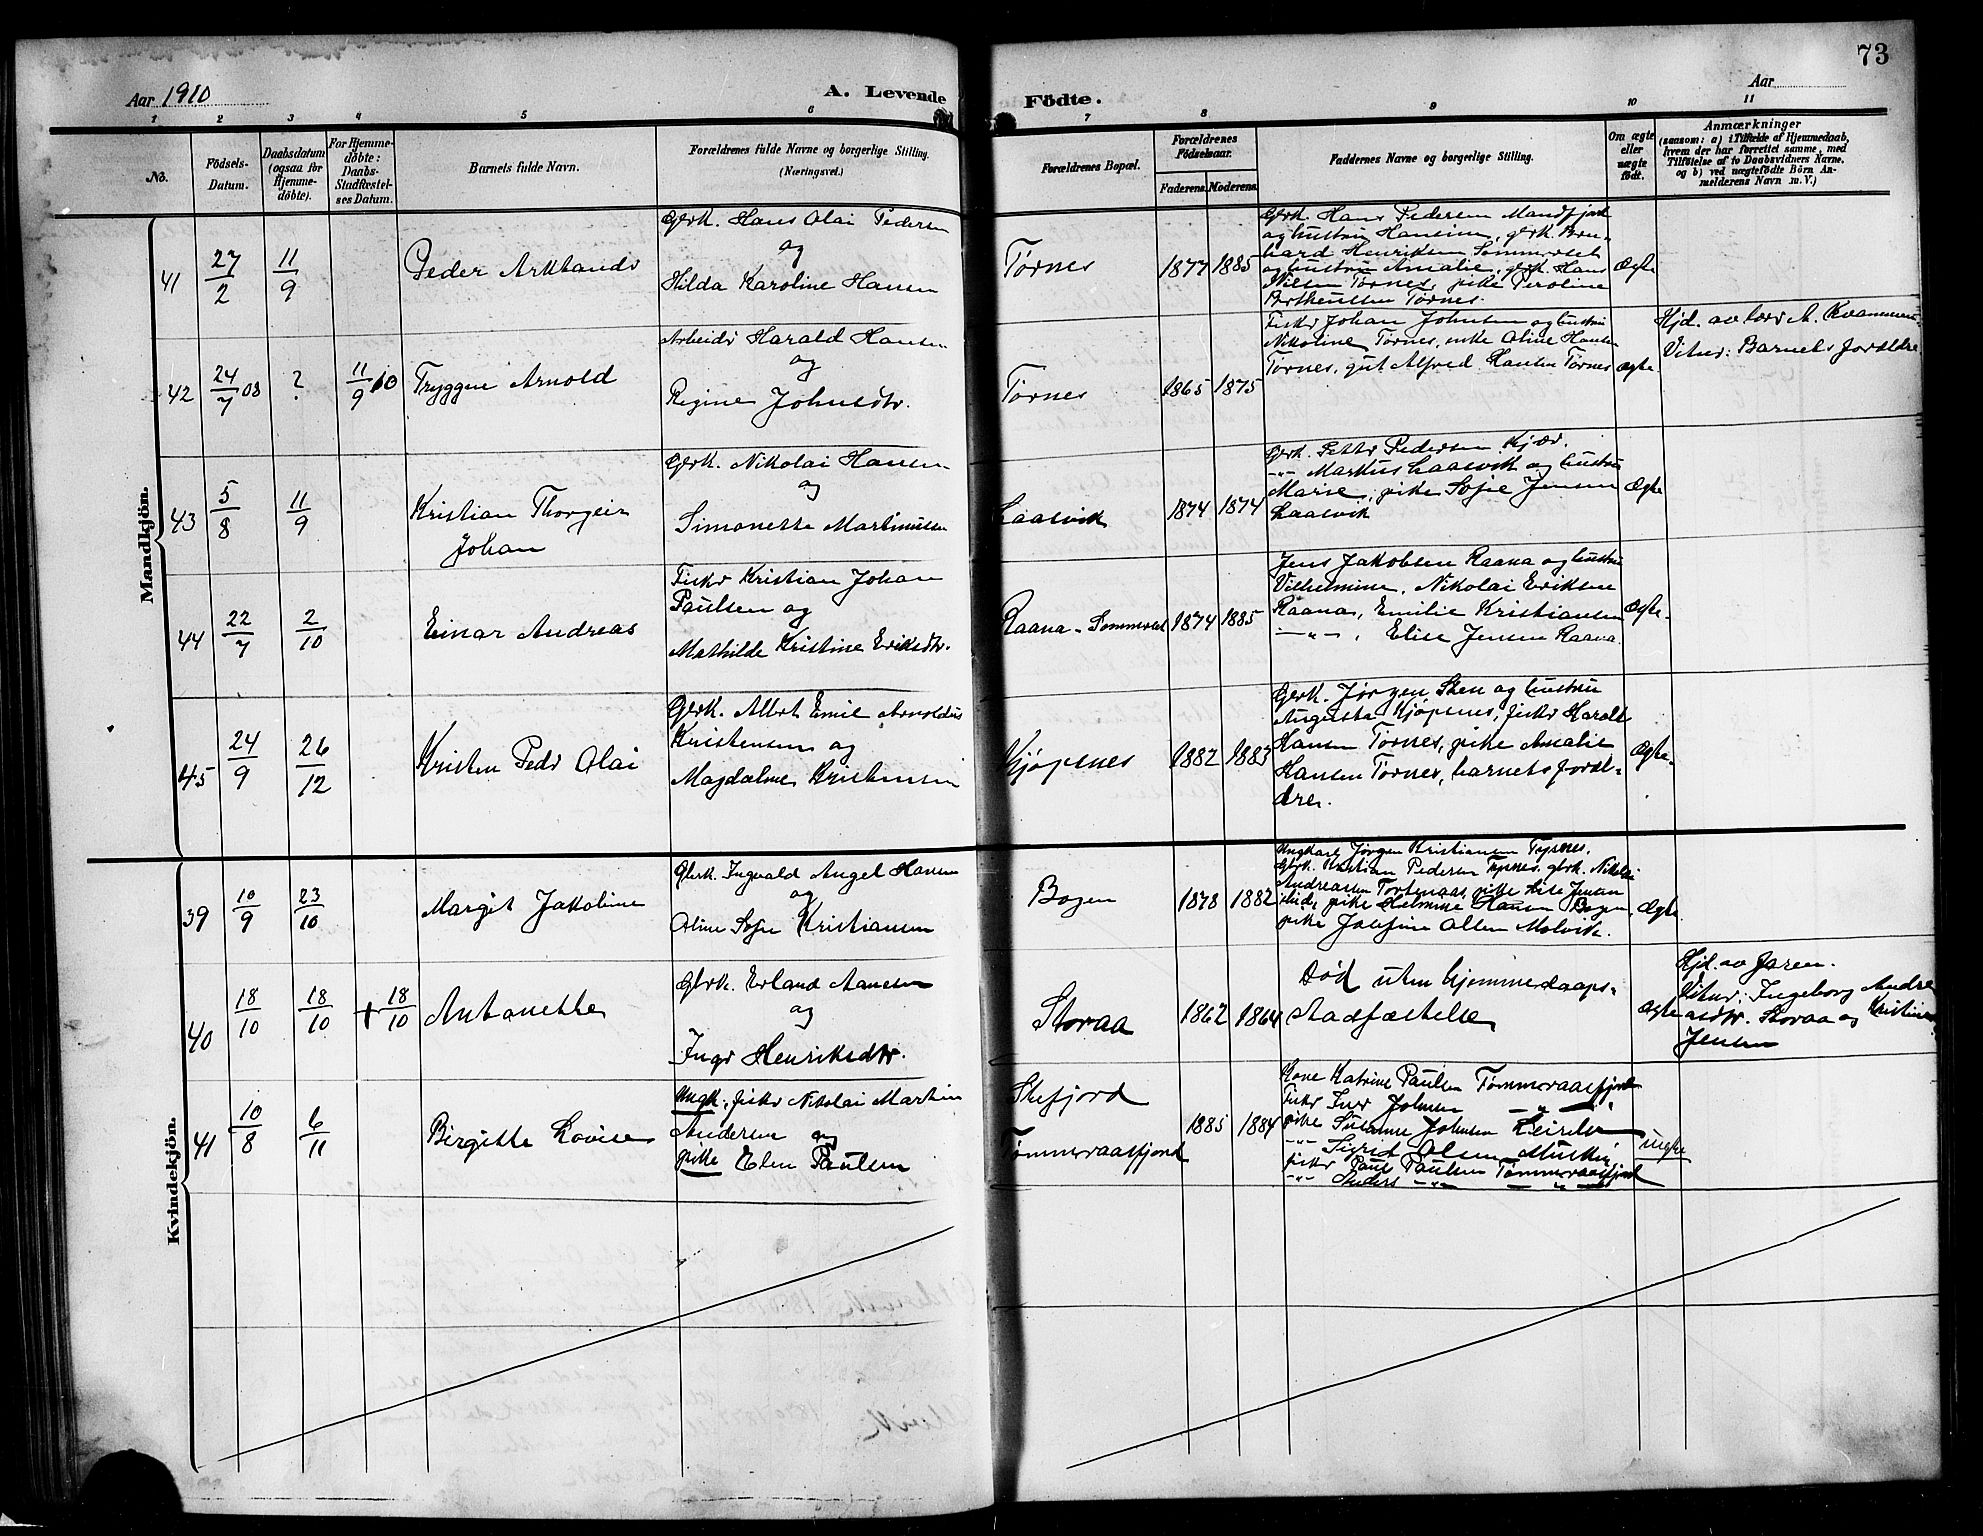 73
Aar 1910
A. Levende
Födte.
Aar
1 2 3 4 5 6 7 8 9 10 11
No.
Födsels-
Datum.
Daabsdatum
(ogsaa for
Hjemme-
döbte).
For Hjemme-
döbte:
Daabs-
Stadfæstel-
ses Datum.
Barnets fulde Navn.
Forældrenes fulde Navne og borgerlige Stilling.
(Næringsvei.)
Forældrenes Bopæl.
Forældrenes
Födselsaar.
Faderens. Moderens.
Faddernes Navne og borgerlige Stilling.
Om ægte
eller
uægte
födt.
Anmærkninger
(saasom: a) i Tilfælde af Hjemmedaab,
hvem der har forrettet samme, med
Tilföielse af to Daabsvidners Navne,
og b) ved uægtefödte Börn An-
melderens Navn m. V.)
Mandkjön.
41
27/2
11/9
Peder
Grk. Hans Olai Pedersen
og
Hilda Karoline Hansen
Tørnes
1877 1885
Grk. Hans Pedersen Mandfjord
og hustru Hansine, grk. Bern-
hard Henriksen Sommerset
og hustru Amalie, grk. Hans
Nilsen Tørnes, pike Peroline
Tørnes.
Ægte
42
24/7 08
?
11/9 10
Tryggve Arnold
Arbeider Harald Hansen
og
Regine Johnsdtr.
Tørnes
1865 1875
Fisker Johan Johnsen og hustru
Nikoline Tørnes, enke Oline Hansen
Tørnes, gut Alfred Hansen Tørnes
Ægte
Hjd. av lærer A. Kvammen.
Vitner: Barnets forældre
43
5/8
11/9
Kristian Thorgeir
Johan
Grk. Nikolai Hansen
og
Simonette Martinussen
Laasvik
1874 1874
Grk. Petter Pedersen Kjær.
-"- Markus Laasvik og hustru
Marie, pike Sofie Jensen
Laasvik
Ægte
44
22/7
2/10
Einar Andreas
Fisker Kristian Johan
Paulsen og
Mathilde Kristine Eriksdtr.
Raana - Sommerset
1874 1885
Jens Jakobsen Raana og hustru
Vilhelmine, Nikolai Eriksen
Raana, Emilie Kristiansen
-"-, Elise Jensen Raana.
Ægte
45
24/9
26/12
Kristen Peder Olai
Grk. Albert Emil Arnoldus
Kristensen og
Magdalene Kristensen
Kjøpsnes
1882 1883
Grk. Jørgen Steen og hustru
Augusta Kjøpsnes, fisker Harald
Hansen Tørnes, pike Amalie
Hansen Tørnes, barnets foræl-
dre.
Ægte
Kvindekjön.
39
10/9
23/10
Margit Jakobine
Grk. Ingvald Angel Hansen
og
Oline Sofie Kristiansen
Bogen
1878 1882
Ungkarl Jørgen Kristiansen Tysnes.
Grk. Kristian Pedersen Tysnes, grk. Nikolai
Andreassen pike Lise Jensen
pike Helmine Hansen Bogen,
pike Josefine Olsen Molvik.
Ægte
40
18/10
18/10
+ 18/10
Antonette
Grk. Erland Aanesen
og
Inger Henriksdtr.
Storaa
1862 1864
Død uten hjemmedaaps-
stadfæstelse
Ægte
Hjd. av faren.
Vitner: Ingeborg Andre
asdtr. Storaa og Kristine
Jensen
41
10/8
6/11
Birgitte Lovise
Ungk., fisker Nikolai Martin
Andersen og
pike Elen Paulsen
Stefjord
Tømmeraasfjord
1885 1884
Kone Katrine Paulsen Tømmeraasfjord
Fisker Iver Johnsen -"-
pike Susanne Johnsen
-"- Sigrid Olsen
fisker Paul Paulsen Tømmeraasfjord
-"- Anders -"- -"-
uegte